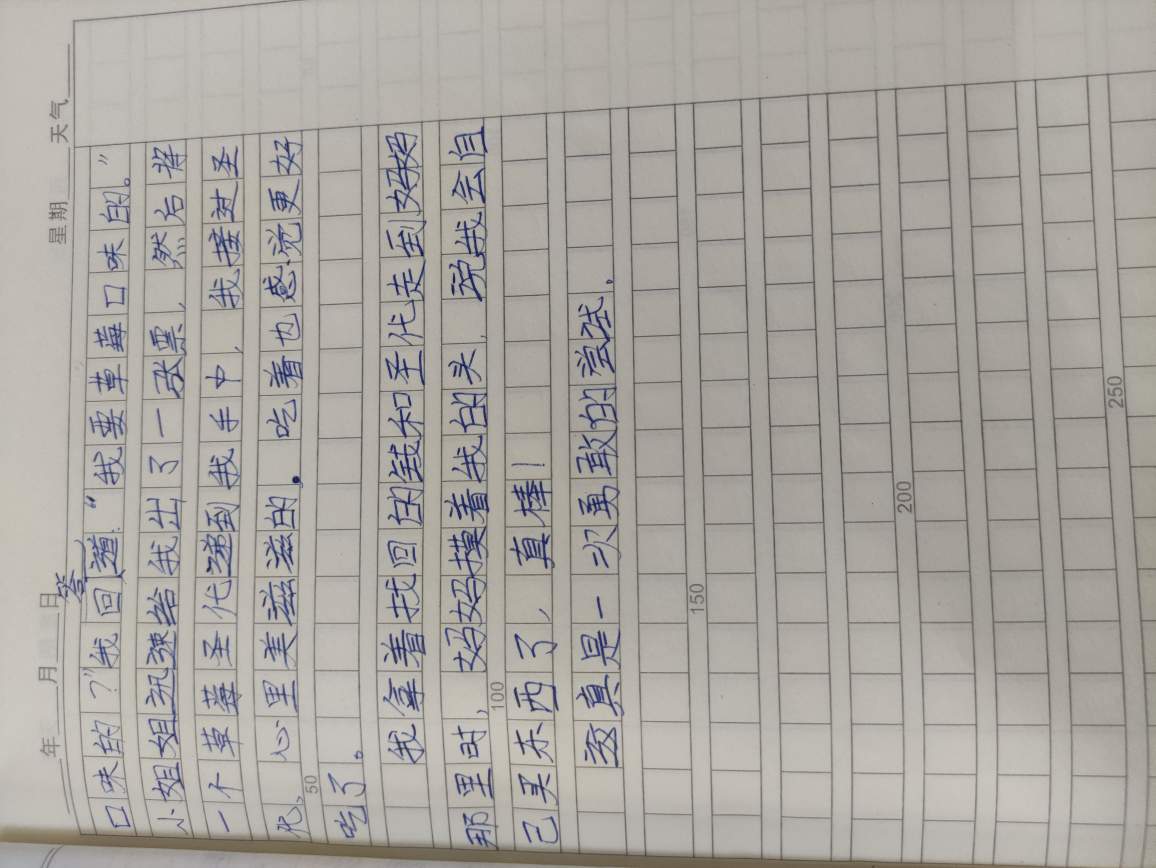 年 月 日 星期 天气
答
口味的？”我回道：“我要草莓口味的。”
小姐姐迅速给我出了一张票，然后将
一个草莓圣代递到我手中，我接过圣
代，心里美滋滋的。吃着也感觉更好
50
吃了。
我拿着找回的钱和圣代走到妈妈
那里时，妈妈摸着我的头，说我会自
100
己买东西了，真棒！
这真是一次勇敢的尝试。
150
200
250